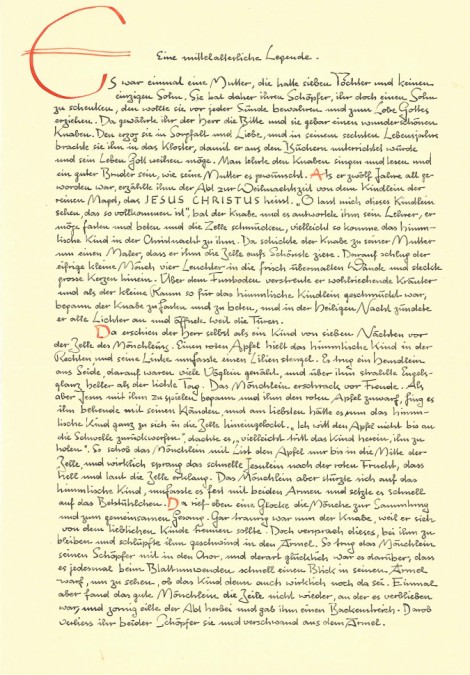 Eine mittelalterliche Legende.
Es war einmal eine Mutter, die hatte sieben Töchter und keinen
einzigen Sohn. Sie bat daher ihren Schöpfer, ihr doch einen Sohn
zu schenken, den wollte sie vor jeder Sünde bewahren und zum Lobe Gottes
erziehen. Da gewährte ihr der Herr die Bitte und sie gebar einen wunderschönen
Knaben. Den erzog sie in Sorgfalt und Liebe, und in seinem sechsten Lebensjahre
brachte sie ihn in das Kloster, damit er aus den Büchern unterrichtet würde
und sein Leben Gott weihen möge. Man lehrte den Knaben singen und lesen und
ein guter Bruder sein, wie seine Mutter es gewünscht. Als er zwölf Jahre alt ge-
worden war, erzählte ihm der Abt zur Weihnachtszeit von dem Kindlein der
reinen Magd, das JESUS CHRISTUS heisst. „O lasst mich dieses Kindlein
sehen, das so vollkommen ist" bat der Knabe und es antwortete ihm sein Lehrer, er
möge fasten und beten und die Zelle schmücken, vielleicht so komme das himm-
lische Kind in der Christnacht zu ihm. Da schickte der Knabe zu seiner Mutter
um einen Maler, dass er ihm die Zelle aufs Schönste ziere. Darauf schlug der
eifrige kleine Mönch vier Leuchter in die frisch übermalten Wände und steckte
grosse Kerzen hinein. Über dem Fussboden verstreute er wohlriechende Kräuter
und als der kleine Raum so für das himmlische Kindlein geschmückt war,
begann der Knabe zu fasten und zu beten, und in der Heiligen Nacht zündete
er alle Lichter an und öffnete weit die Türen.
Da erschien der Herr selbst als ein Kind von sieben Nächten vor
der Zelle des Mönchleins. Einen roten Apfel hielt das himmlische Kind in der
Rechten und seine Linke umfasste einen Lilienstengel. Es trug ein Hemdlein
aus Seide, darauf waren viele Vöglein genäht, und über ihm strahlte Engels-
glanz heller als der lichte Tag. Das Mönchlein erschrack vor Freude. Als
aber Jesus mit ihm zu spielen begann und ihm den roten Apfel zuwarf, fing es
ihn behende mit seinen Händen, und am liebsten hätte es nun das himm-
lische Kind ganz zu sich in die Zelle hineingelockt. „Ich will den Apfel nicht bis an
die Schwelle zurückwerfen", dachte es, „vielleicht tritt das Kind herein, ihn zu
holen". So schob das Mönchlein mit List den Apfel nur bis in die Mitte der
Zelle, und wirklich sprang das schnelle Jesulein nach der roten Frucht, dass
hell und laut die Zelle erklang. Das Mönchlein aber stürzte sich auf das
himmlische Kind, umfasste es fest mit beiden Armen und setzte es schnell
auf das Betstühlchen. Da rief eben eine Glocke die Mönche zur Sammlung
und zum gemeinsamen Gesang. Gar traurig war nun der Knabe, weil er sich
von dem lieblichen Kinde trennen sollte. Doch versprach dieses, bei ihm zu
bleiben und schlüpfte ihm geschwind in den Ärmel. So trug das Mönchlein
seinen Schöpfer mit in den Chor, und derart glücklich war es darüber, dass
es jedesmal beim Blattumwenden schnell einen Blick in seinen Ärmel
warf, um zu sehen, ob das Kind denn auch wirklich noch da sei. Einmal
aber fand das gute Mönchlein die Zeile nicht wieder, an der es verblieben
war, und zornig eilte der Abt herbei und gab ihm einen Backenstreich. Darob
verliess ihr beider Schöpfer sie und verschwand aus dem Ärmel.